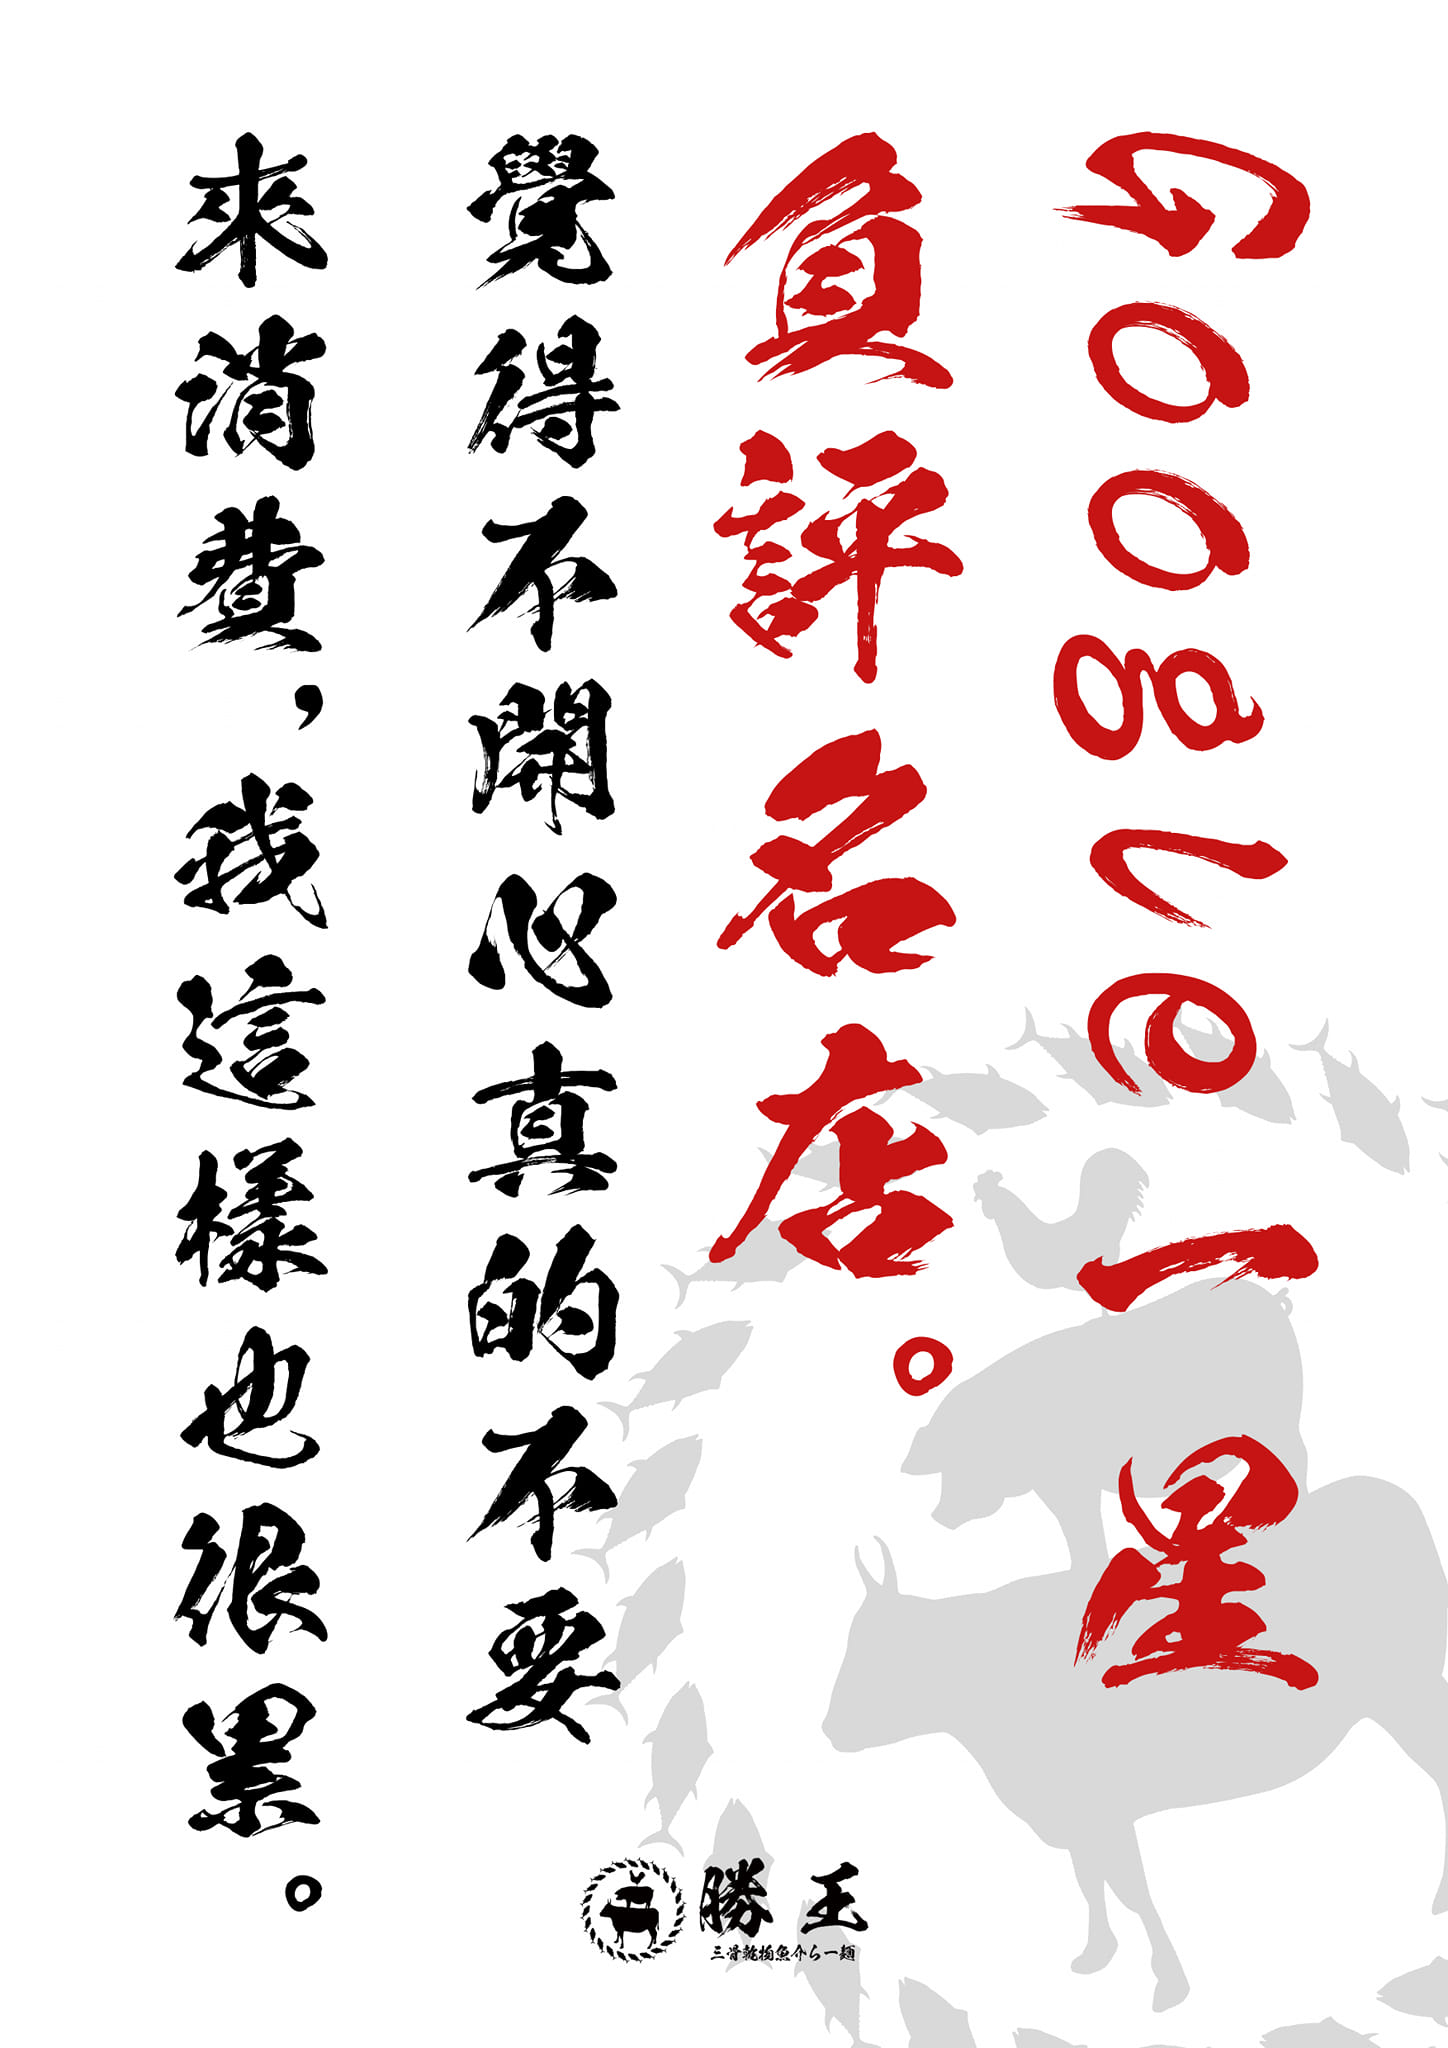 Google 一星
負評名店。
覺得不開心真的不要
來消費，我這樣也很累。
勝王
三骨乾物魚介らー麺